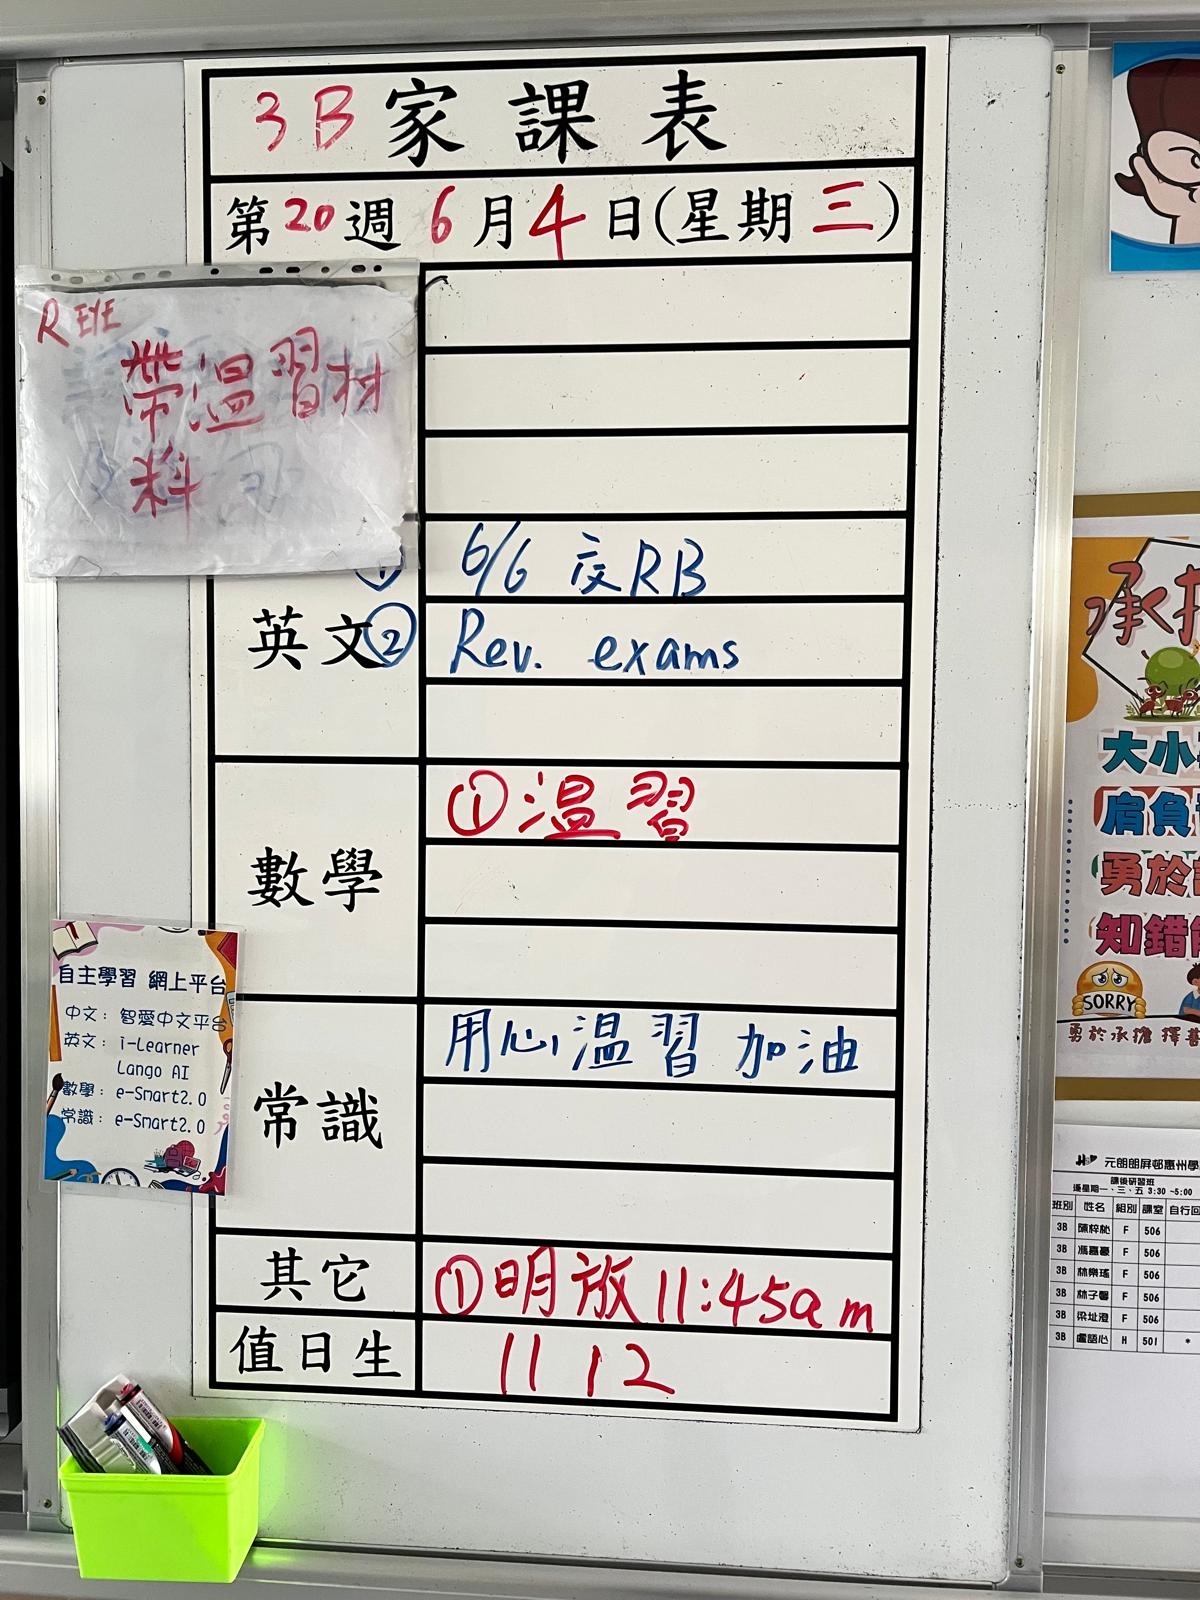 3B家課表
第20週 6月4日(星期三)
R EYE
帶溫習材
料
英文
① 6/6 交RB
② Rev. exams
數學
①溫習
常識
用心溫習 加油
其它
①明放11:45am
值日生
11 12
自主學習 網上平台
中文：智愛中文平台
英文：i-Learner
Lango AI
數學：e-Smart2.0
常識：e-Smart2.0
承
大小
肩負
勇於
知錯
SORRY
勇於承擔 擇善
元朗朗屏邨惠州學
課後研習班
逢星期一、三、五 3:30 ~5:00
班別 姓名 組別 課室 自行回
3B F 506
3B F 506
3B 林樂瑤 F 506
3B 林子馨 F 506
3B 梁址澄 F 506
3B 盧語心 H 501 *